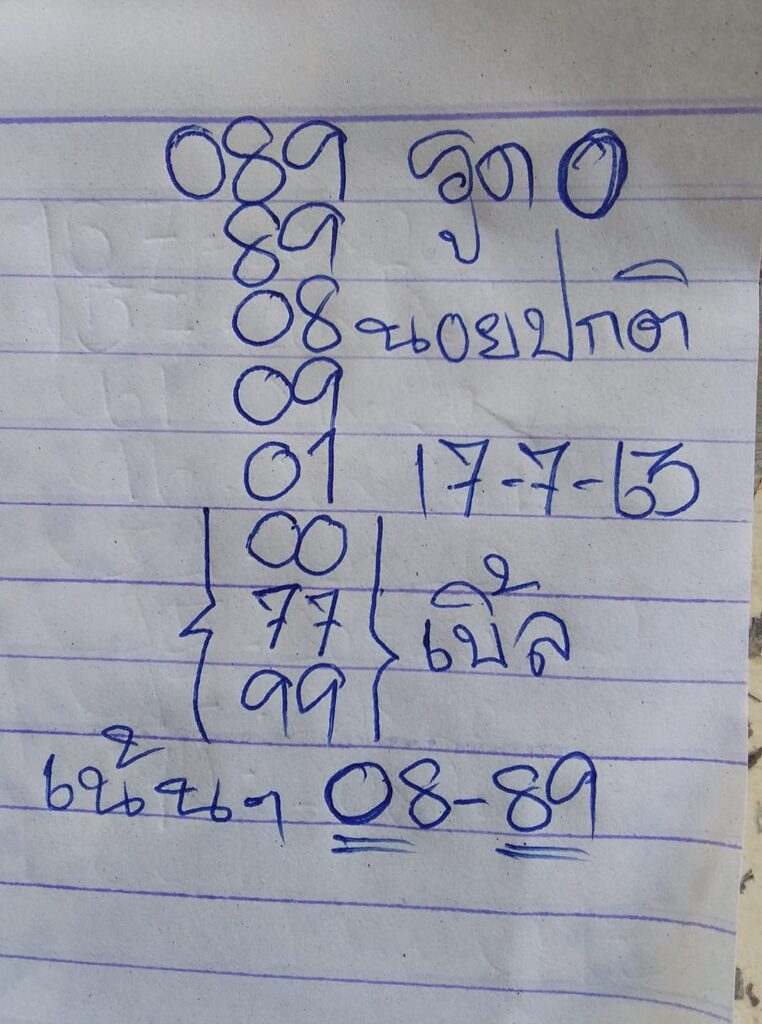 089 รูด 0
89
08 นอยปกติ
09
01 17-7-63
00
77 เบิ้ล
99
เน้นๆ 08-89